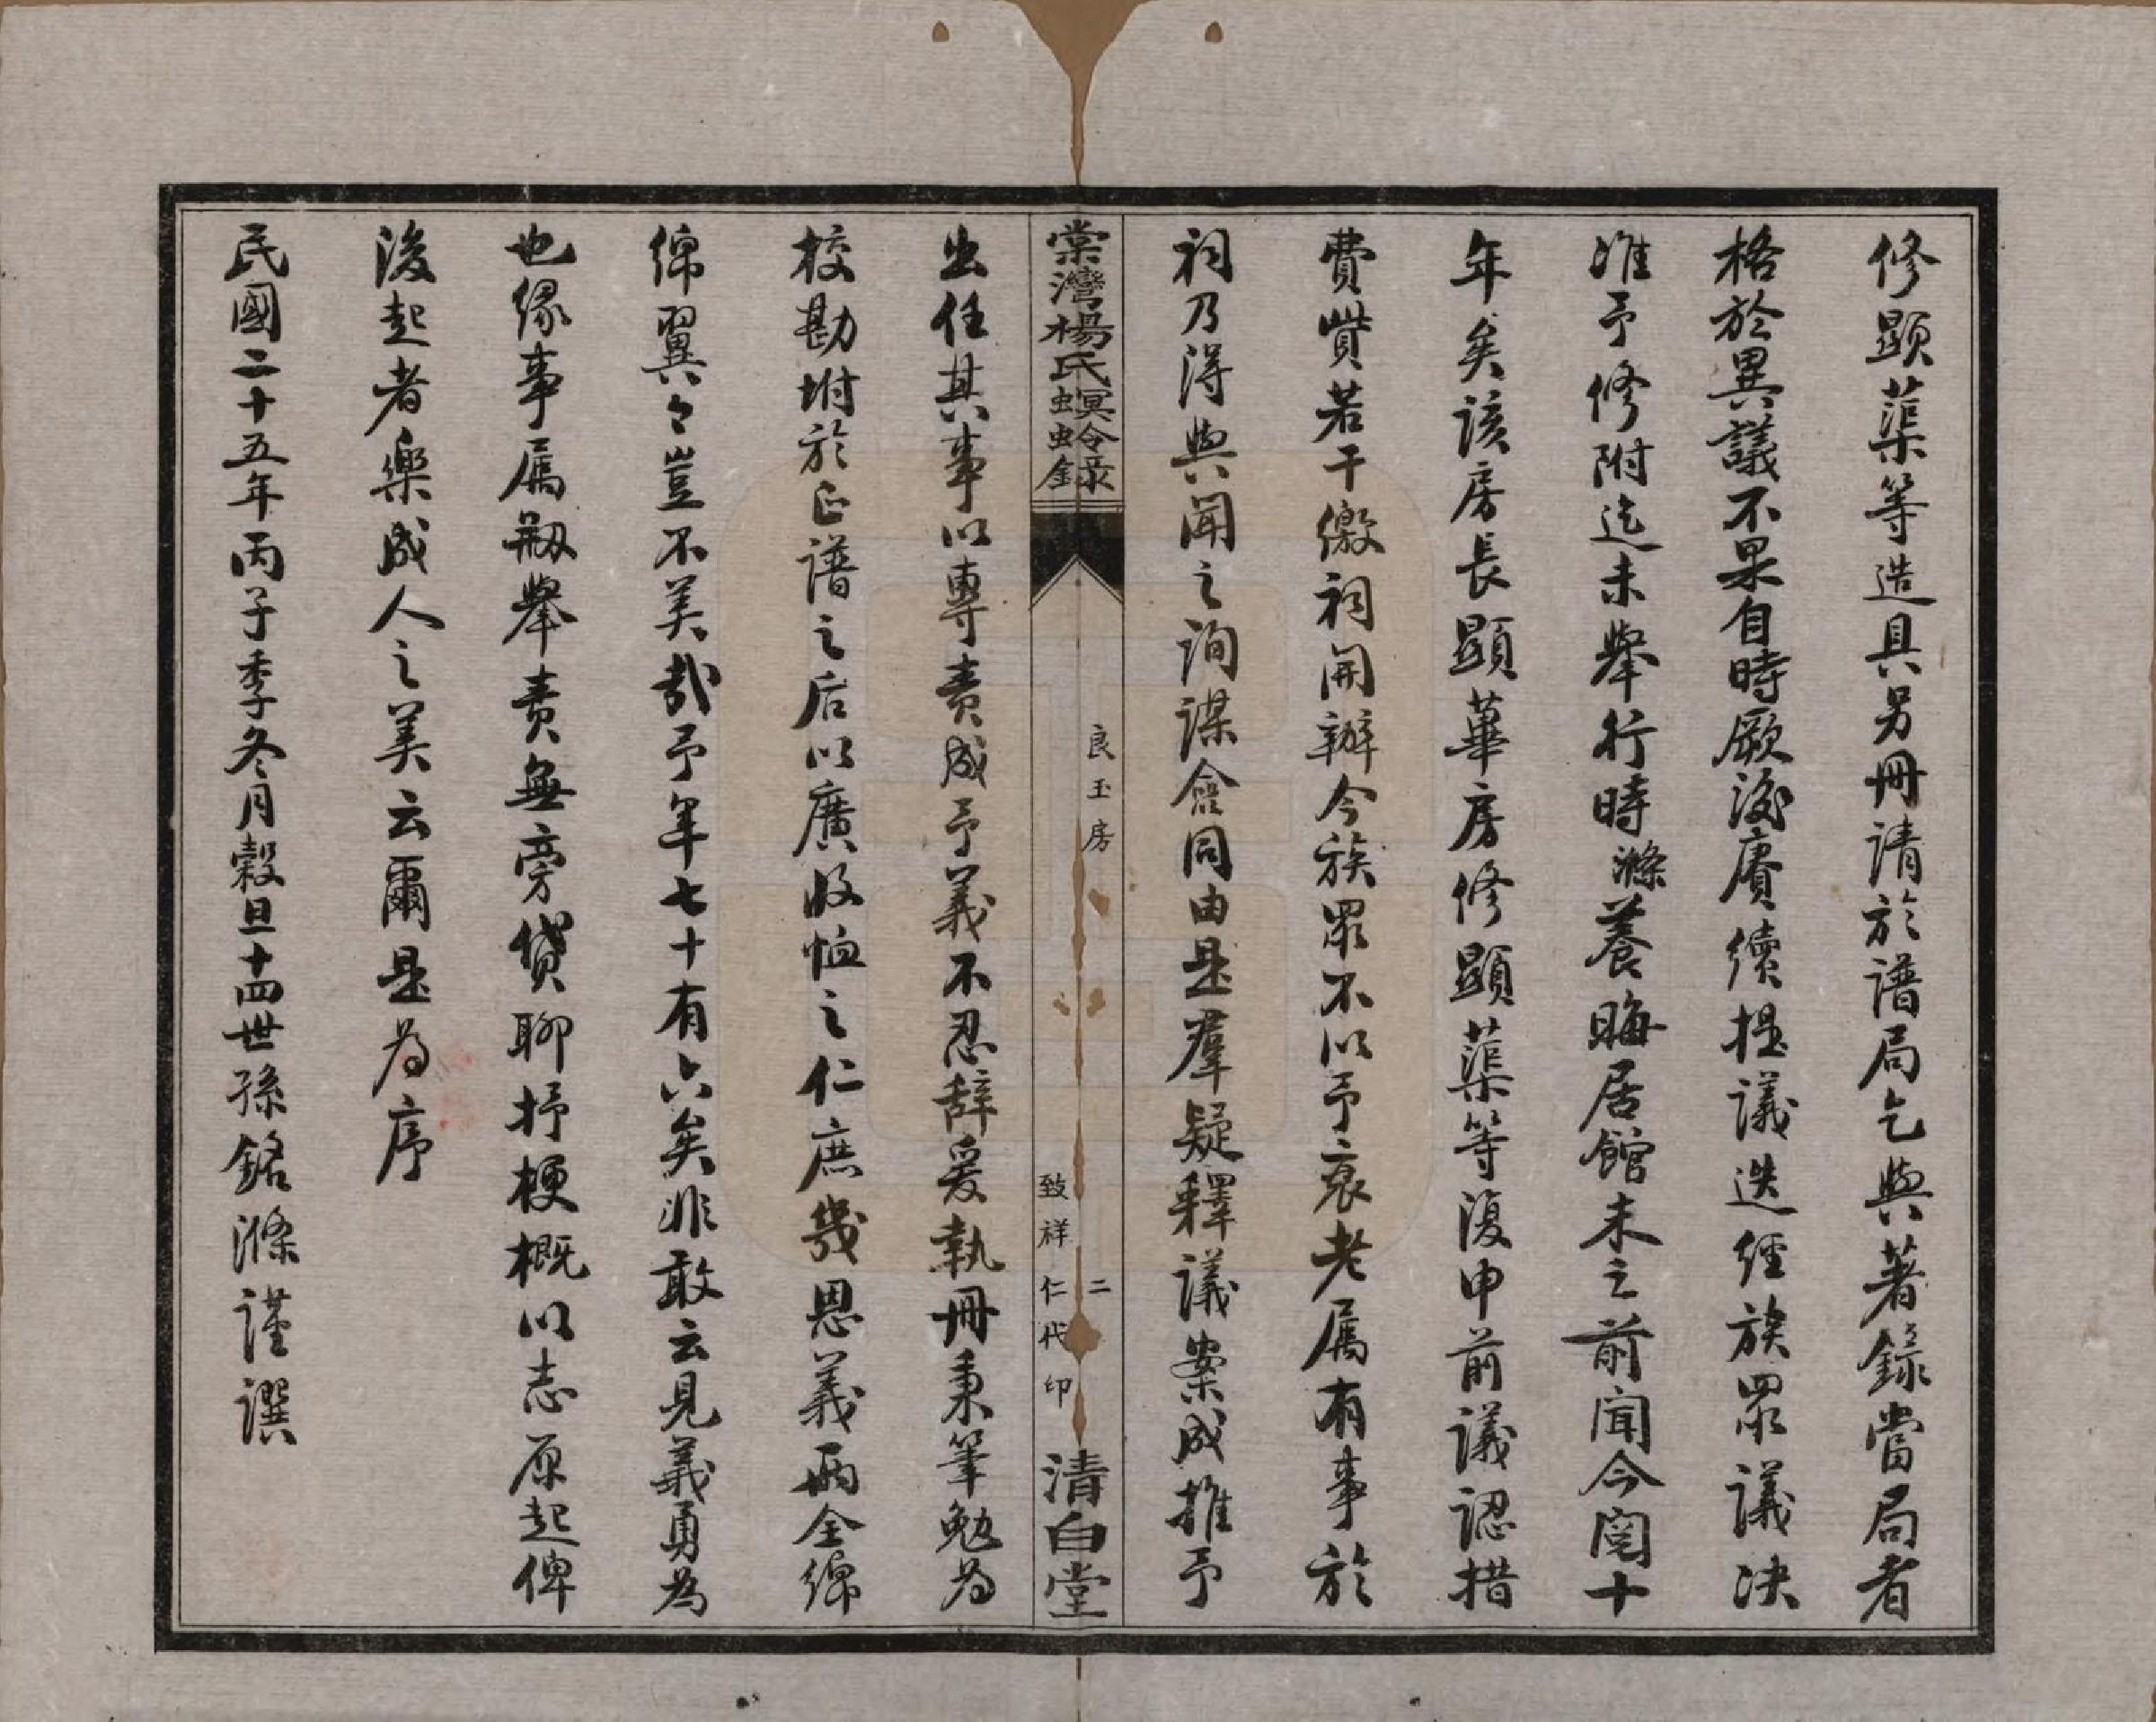 修顯蕖等造具另冊請於譜局乞與著錄當局者
格於異議不果自時厥後賡續提議迭經族眾議決
准予修附迄未舉行時滌養晦居館未之前聞今閱十
年矣該房長顯華房修顯蕖等復申前議認措
費貲若干繳祠開辦今族眾不以予衰老属有事於
祠乃得與聞之詢謀僉同由是羣疑釋議案成推予
棠灣楊氏螟蛉錄
良玉房
二
致祥仁代印
清白堂
出任其事以專責成予義不忍辭爰執冊秉筆勉为
校勘坿於正譜之后以廣收恤之仁庶幾恩義両全綿
綿翼々豈不美哉予年七十有六矣非敢云見義勇為
也缘事属剏舉責無旁貸聊抒梗概以志原起俾
後起者樂成人之美云爾是为序
民國二十五年丙子季冬月穀旦十四世孫銘滌謹譔